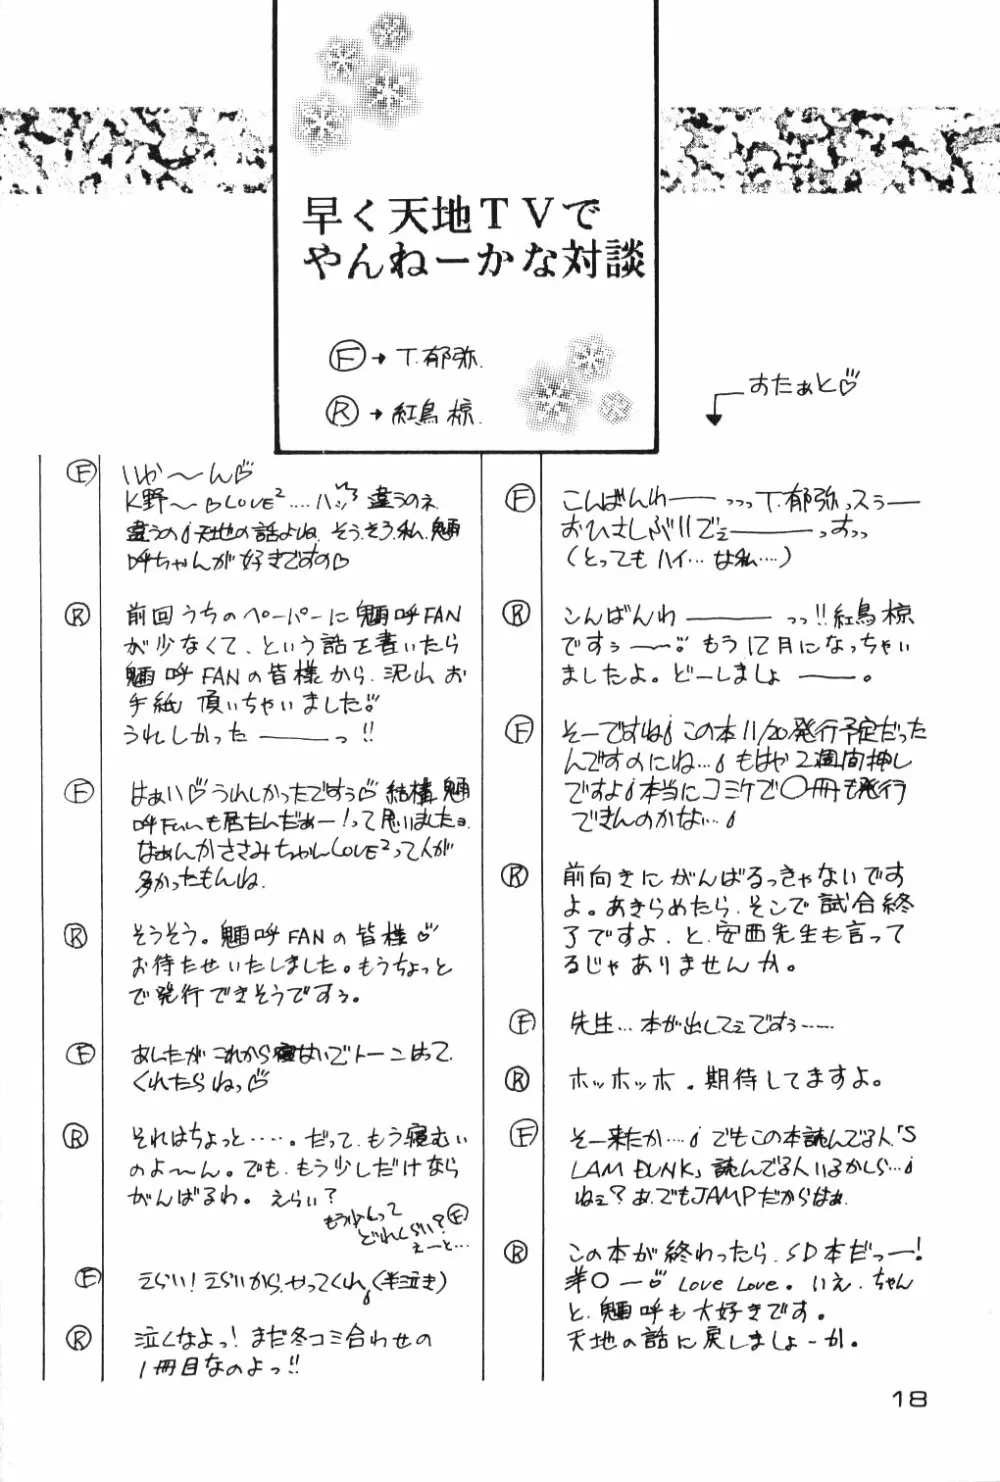 早く天地TVで
やんねーかな対談
Ⓕ→T.郁弥.
Ⓡ→紅鳥 椋.
おたぁと♡
Ⓕ こんばんわ——っっっT.郁弥っスぅ—
おひさしぶりでぇ———っすっっ
(とってもハイ…な私….)
Ⓡ こんばんわ————っっ!!紅鳥 椋
ですぅ——〜。もう12月になっちゃい
ましたよ。どーしましょ———。
Ⓕ そーですね この本11/20発行予定だった
んですのにね… もはや2週間押し
ですよ 本当にコミケで〇冊も発行
できんのかな…
Ⓡ 前向きにがんばるっきゃないです
よ。あきらめたら、そこで試合終
了ですよ、と、安西先生も言って
るじゃありませんか。
Ⓕ 先生… 本が出してぇですぅ……
Ⓡ ホッホッホ。期待してますよ。
Ⓕ そー来たか…. でもこの本読んでる人「S
LAM DUNK」読んでる人いるかしら…
ねぇ?あ、でもJAMPだからはぁ.
Ⓡ この本が終わったら、SD本だっー!
〇ー♡ Love Love。いえ、ちゃん
と、魎呼も大好きです。
天地の話に戻しましょーか。
Ⓕ いか〜ん♡
K野〜♡LOVE²….ハッ 違うのネ
違うの 天地の話よね、そうそう私、魎
呼ちゃんが好きですの♡
Ⓡ 前回うちのペーパーに魎呼FAN
が少なくて、という話を書いたら
魎呼FANの皆様から、沢山お
手紙 頂いちゃいました
うれしかった———っ!!
Ⓕ はぁい♡うれしかったですぅ♡結構、魎
呼Fanも居たんだぁー!って思いました。
なぁんかささみちゃんLOVE²って人が
多かったもんね.
Ⓡ そうそう。魎呼FANの皆様♡
お待たせいたしました。もうちょっと
で発行できそうですぅ。
Ⓕ あしたがこれから寝ないでトーンはって
くれたらねっ♡
Ⓡ それはちょっと…‥。だって、もう寝むい
のよ〜ん。でも、もう少しだけなら
がんばるわ。えらい?
もう少しって
どれくらい?Ⓕ
えーと…
Ⓕ えらい!えらいから、やってくれ(半泣き)
Ⓡ 泣くなよっ!まだ冬コミ合わせの
1冊目なのよっ!!
18